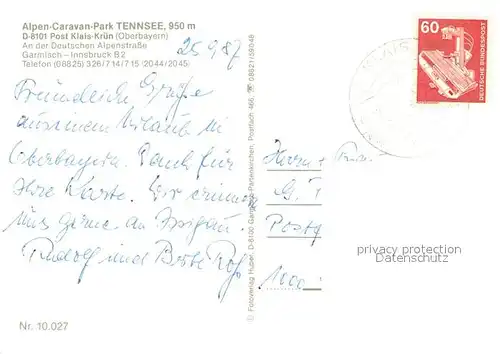 Alpen-Caravan-Park TENNSEE, 950 m
D-8101 Post Klais-Krün (Oberbayern)
An der Deutschen Alpenstraße
Garmisch – Innsbruck B2
Telefon (08825) 326/714/715 (2044/2045)
25.9.87
Freundliche Grüße
aus einem Urlaub in
Oberbayern. Dank für
Ihre Karte. Wir erinnern
uns gerne an
Rudolf und
Nr. 10.027
© Fotoverlag Huber, D-8100 Garmisch-Partenkirchen, Postfach 466, ☎ 08821/58048
60
DEUTSCHE BUNDESPOST
KLAIS
Herrn
G.
Postf
1000
privacy protection
Datenschutz